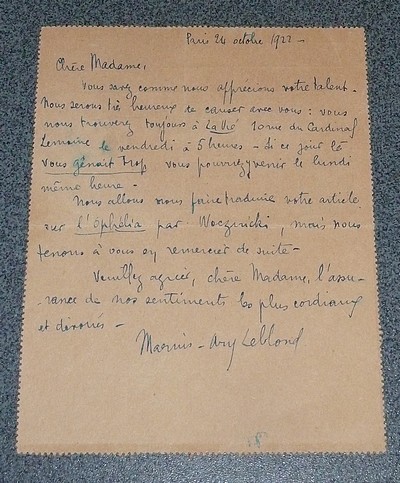 Paris 24 octobre 1922 -
Chère Madame,
Vous savez comme nous apprécions votre talent -
Nous serons très heureux de causer avec vous : vous
nous trouverez toujours à La Vie 10 rue du Cardinal
Lemoine le vendredi à 5 heures - Si ce jour là
vous gênait trop vous pourriez y venir le lundi
même heure -
Nous allons nous faire traduire votre article
sur l'Ophélia par , mais nous
tenons à vous en remercier de suite -
Veuillez agréer, chère Madame, l'assu-
-rance de nos sentiments les plus cordiaux
et dévoués -
Marius-Ary Leblond